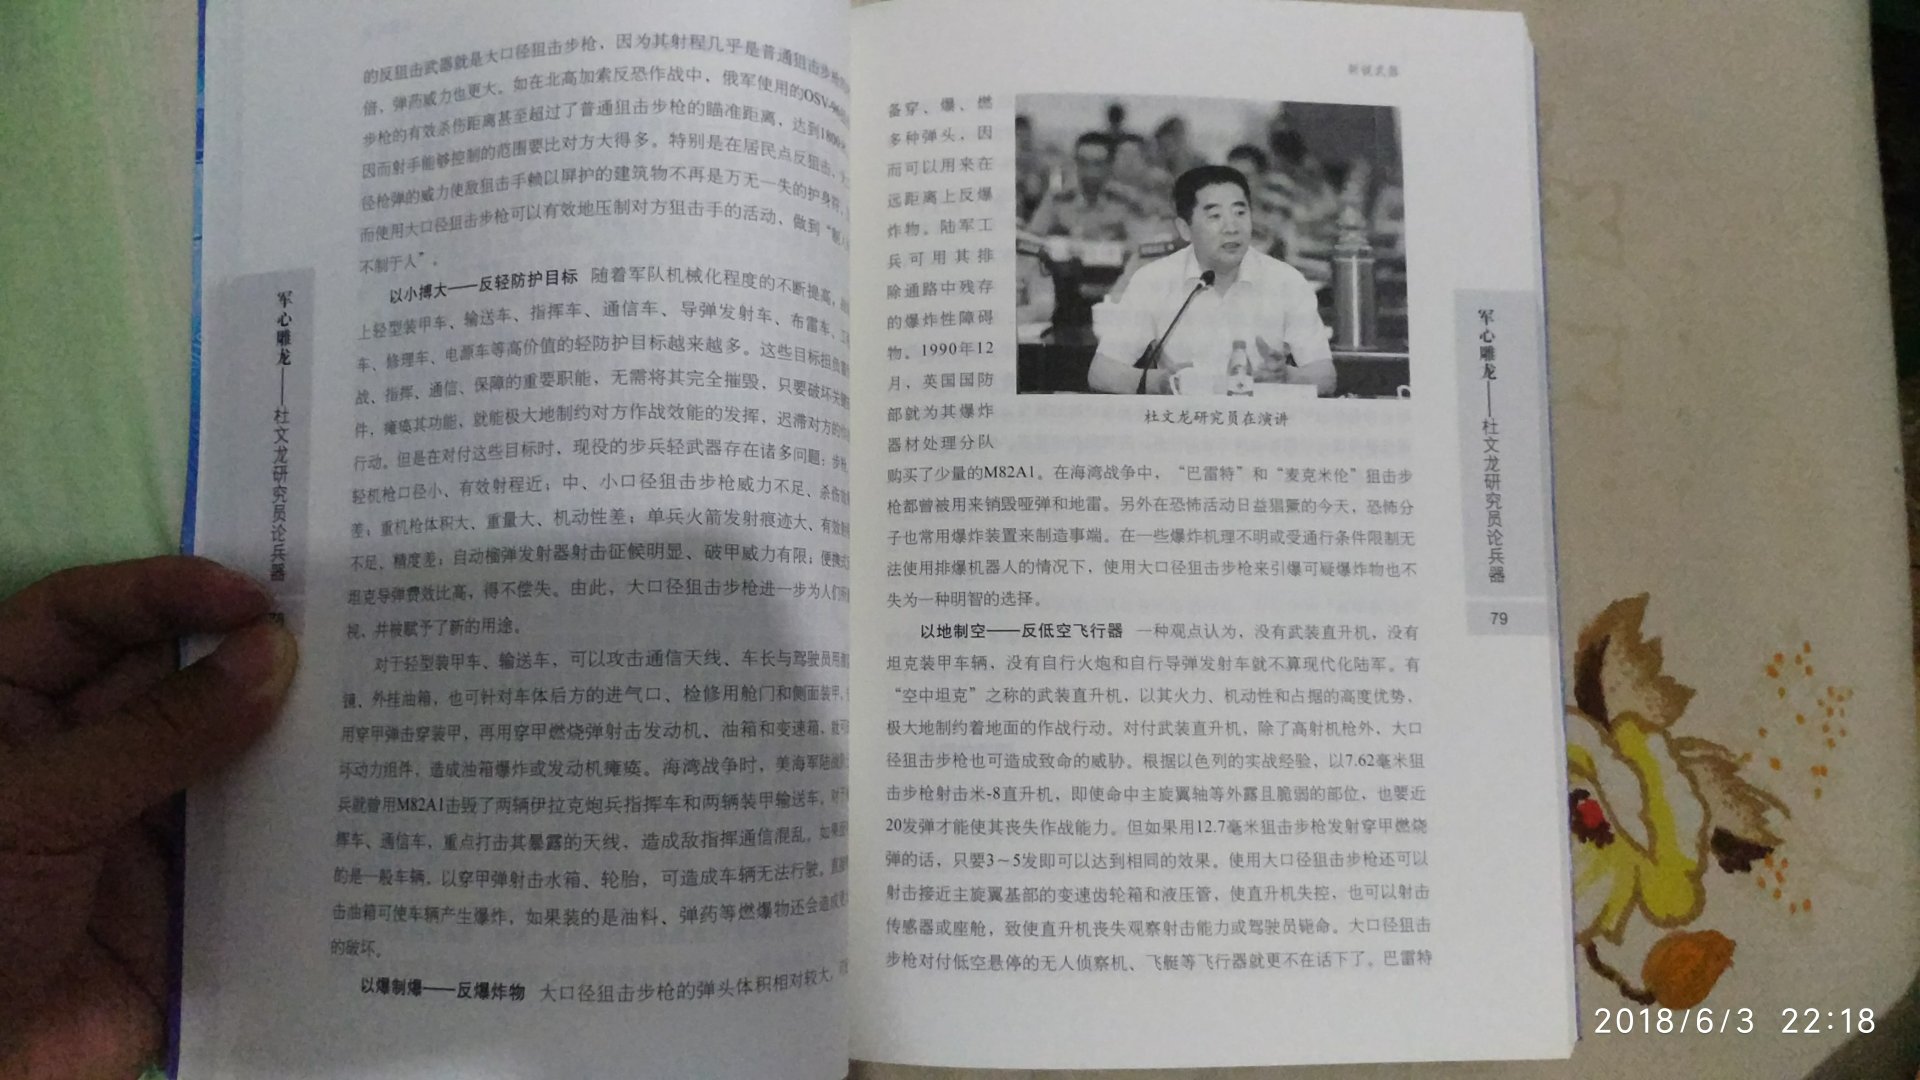 的反狙击武器就是大口径狙击步枪，因为其射程几乎是普通狙击步枪
倍，弹药威力也更大。如在北高加索反恐作战中，俄军使用的OSV-96
步枪的有效杀伤距离甚至超过了普通狙击步枪的瞄准距离，达到1800
因而射手能够控制的范围要比对方大得多。特别是在居民点反狙击，大
径枪弹的威力使敌狙击手赖以屏护的建筑物不再是万无一失的护身符，
而使用大口径狙击步枪可以有效地压制对方狙击手的活动、做到“制人
不制于人”。
以小搏大——反轻防护目标 随着军队机械化程度的不断提高，
上轻型装甲车、输送车、指挥车、通信车、导弹发射车、布雷车、工
车、修理车、电源车等高价值的轻防护目标越来越多。这些目标担负
战、指挥、通信、保障的重要职能，无需将其完全摧毁、只要破坏关
件，瘫痪其功能、就能极大地制约对方作战效能的发挥，迟滞对方的
行动。但是在对付这些目标时，现役的步兵轻武器存在诸多问题：步枪、
轻机枪口径小、有效射程近；中、小口径狙击步枪威力不足、杀伤
差；重机枪体积大、重量大、机动性差；单兵火箭发射痕迹大、有效
不足、精度差；自动榴弹发射器射击征候明显、破甲威力有限；便携式
坦克导弹费效比高，得不偿失。由此，大口径狙击步枪进一步为人们所
视、并被赋予了新的用途。
对于轻型装甲车、输送车，可以攻击通信天线、车长与驾驶员用
镜、外挂油箱，也可针对车体后方的进气口、检修用舱门和侧面装甲，
用穿甲弹击穿装甲，再用穿甲燃烧弹射击发动机、油箱和变速箱，就可
坏动力组件，造成油箱爆炸或发动机瘫痪。海湾战争时，美海军陆战
兵就曾用M82A1击毁了两辆伊拉克炮兵指挥车和两辆装甲输送车。对于
挥车、通信车，重点打击其暴露的天线，造成敌指挥通信混乱。如果
的是一般车辆，以穿甲弹射击水箱、轮胎，可造成车辆无法行驶。直接
击油箱可使车辆产生爆炸，如果装的是油料、弹药等燃爆物还会造成更
的破坏。
以爆制爆——反爆炸物 大口径狙击步枪的弹头体积相对较大，
军心雕龙——杜文龙研究员论兵器
新锐武器
备穿、爆、燃
多种弹头，因
而可以用来在
远距离上反爆
炸物。陆军工
兵可用其排
除通路中残存
的爆炸性障碍
物。1990年12
月，英国国防
部就为其爆炸
器材处理分队
杜文龙研究员在演讲
购买了少量的M82A1。在海湾战争中，“巴雷特”和“麦克米伦”狙击步
枪都曾被用来销毁哑弹和地雷。另外在恐怖活动日益猖獗的今天，恐怖分
子也常用爆炸装置来制造事端。在一些爆炸机理不明或受通行条件限制无
法使用排爆机器人的情况下，使用大口径狙击步枪来引爆可疑爆炸物也不
失为一种明智的选择。
以地制空——反低空飞行器 一种观点认为，没有武装直升机，没有
坦克装甲车辆，没有自行火炮和自行导弹发射车就不算现代化陆军。有
“空中坦克”之称的武装直升机，以其火力、机动性和占据的高度优势，
极大地制约着地面的作战行动。对付武装直升机，除了高射机枪外，大口
径狙击步枪也可造成致命的威胁。根据以色列的实战经验，以7.62毫米狙
击步枪射击米-8直升机，即使命中主旋翼轴等外露且脆弱的部位，也要近
20发弹才能使其丧失作战能力。但如果用12.7毫米狙击步枪发射穿甲燃烧
弹的话，只要3～5发即可以达到相同的效果。使用大口径狙击步枪还可以
射击接近主旋翼基部的变速齿轮箱和液压管，使直升机失控，也可以射击
传感器或座舱，致使直升机丧失观察射击能力或驾驶员毙命。大口径狙击
步枪对付低空悬停的无人侦察机、飞艇等飞行器就更不在话下了。巴雷特
军心雕龙——杜文龙研究员论兵器
79
2018/6/3 22:18